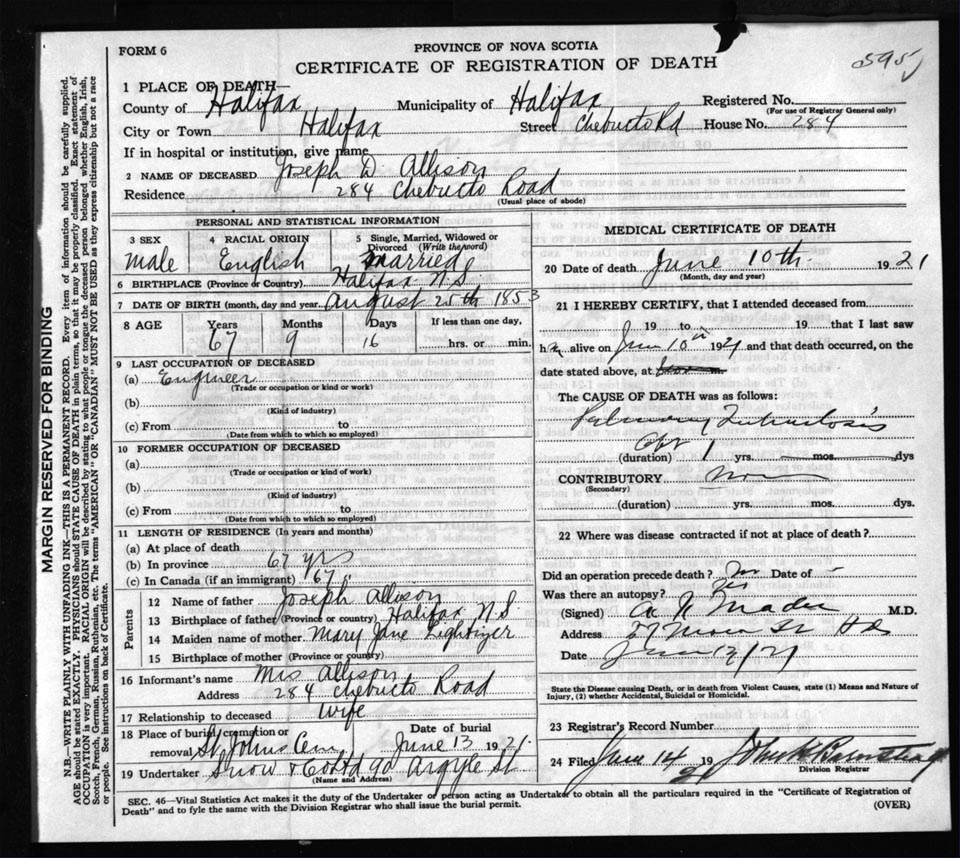 FORM 6
PROVINCE OF NOVA SCOTIA
CERTIFICATE OF REGISTRATION OF DEATH
595
1 PLACE OF DEATH—
County of Halifax Municipality of Halifax Registered No.
(For use of Registrar General only)
City or Town Halifax Street Chebucto Rd House No. 284
If in hospital or institution, give name
2 NAME OF DECEASED Joseph D. Allison
Residence 284 Chebucto Road
(Usual place of abode)
PERSONAL AND STATISTICAL INFORMATION
3 SEX 4 RACIAL ORIGIN 5 Single, Married, Widowed or Divorced (Write the word)
Male English Married
6 BIRTHPLACE (Province or Country) Halifax N.S
7 DATE OF BIRTH (month, day and year) August 25th 1853
8 AGE Years Months Days If less than one day,
67 9 16 hrs. or min.
9 LAST OCCUPATION OF DECEASED
(a) Engineer
(Trade or occupation or kind or work)
(b)
(Kind of industry)
(c) From to
(Date from which to which so employed)
10 FORMER OCCUPATION OF DECEASED
(a)
(Trade or occupation or kind of work)
(b)
(Kind of industry)
(c) From to
(Date from which to which so employed)
11 LENGTH OF RESIDENCE (In years and months)
(a) At place of death
(b) In province 67 yrs
(c) In Canada (if an immigrant) 67
Parents
12 Name of father Joseph Allison
13 Birthplace of father (Province or country) Halifax N.S
14 Maiden name of mother Mary Jane
15 Birthplace of mother (Province or country)
16 Informant's name Mrs Allison
Address 284 Chebucto Road
17 Relationship to deceased Wife
18 Place of burial, cremation or removal St Johns Cem Date of burial June 13 1921
19 Undertaker Snow & Co Ltd 90 Argyle St
(Name and Address)
MEDICAL CERTIFICATE OF DEATH
20 Date of death June 10th 1921
(Month, day and year)
21 I HEREBY CERTIFY, that I attended deceased from
19 to 19 that I last saw
alive on June 10th 1921 and that death occurred, on the
date stated above, at
The CAUSE OF DEATH was as follows:
Pulmonary Tuberculosis
(duration) 1 yrs. mos. dys
CONTRIBUTORY
(Secondary)
(duration) yrs. mos. dys.
22 Where was disease contracted if not at place of death?
Did an operation precede death? No Date of -
Was there an autopsy?
(Signed) M.D.
Address
Date
State the Disease causing Death, or in death from Violent Causes, state (1) Means and Nature of
Injury, (2) whether Accidental, Suicidal or Homicidal.
23 Registrar's Record Number
24 Filed June 14 19
Division Registrar
SEC. 46—Vital Statistics Act makes it the duty of the Undertaker or person acting as Undertaker to obtain all the particulars required in the "Certificate of Registration of
Death" and to fyle the same with the Division Registrar who shall issue the burial permit. (OVER)
MARGIN RESERVED FOR BINDING
N.B.—WRITE PLAINLY WITH UNFADING INK—THIS IS A PERMANENT RECORD. Every item of information should be carefully supplied.
AGE should be stated EXACTLY. PHYSICIANS should STATE CAUSE OF DEATH in plain terms, so that it may be properly classified. Exact statement of
OCCUPATION is very important. RACIAL ORIGIN will be described by stating to what people or tongue the deceased person belonged whether English, Irish,
Scotch, French, German, Russian, Ruthenian, etc. The terms "AMERICAN" OR "CANADIAN" MUST NOT BE USED as they express citizenship but not a race
or people. See instructions on back of Certificate.